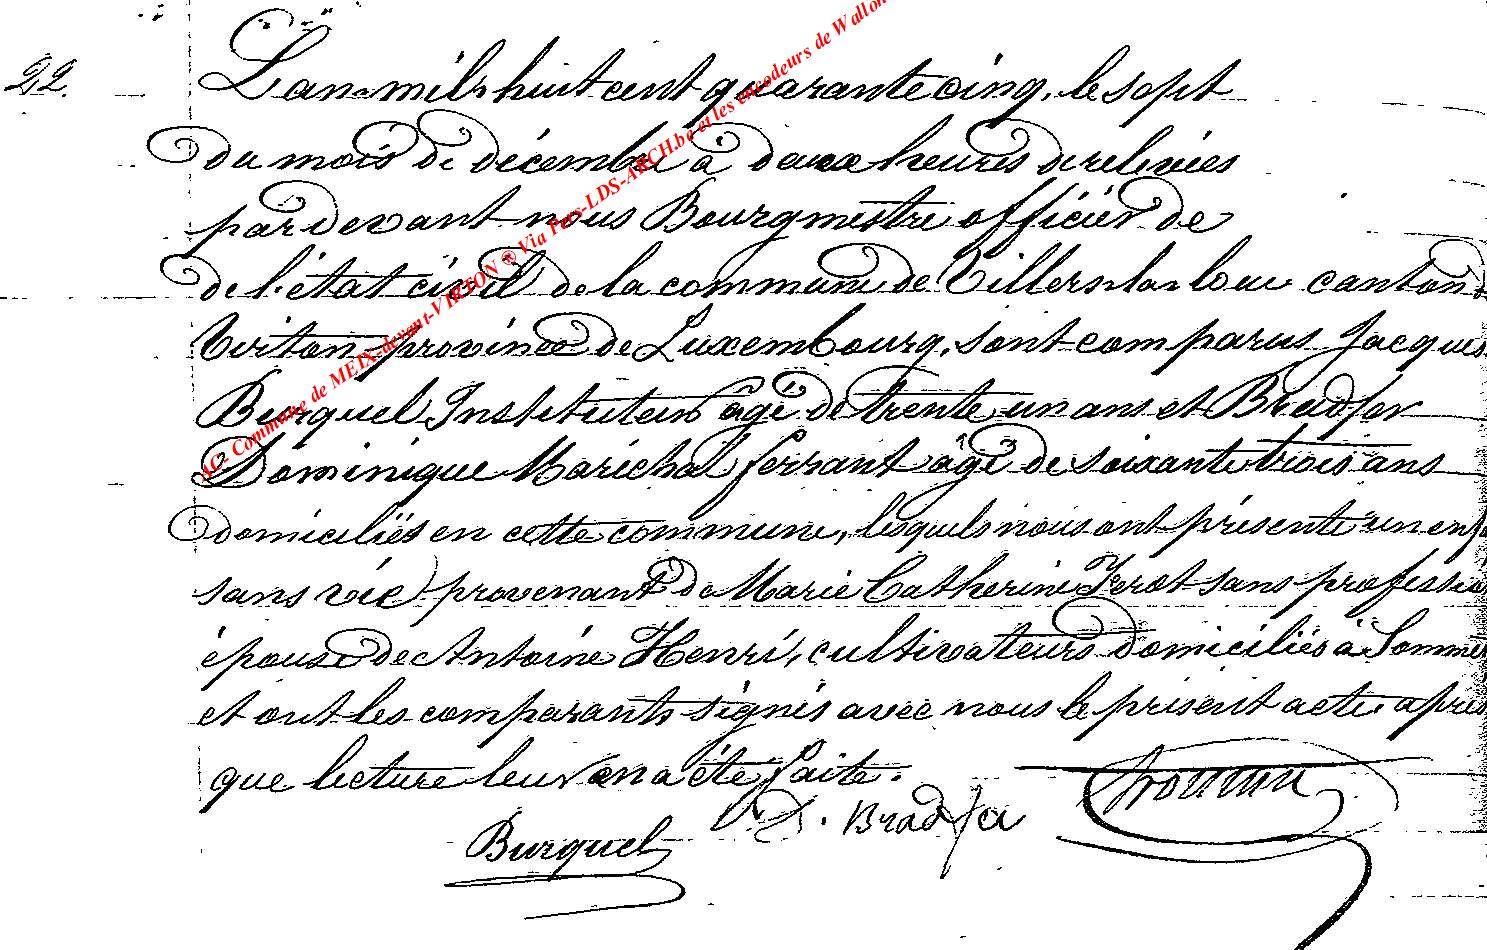 22.
L'an mil huit cent quarante cinq, le sept
du mois de décembre à deux heures de relevées
pardevant nous Bourgmestre officier de
de l'état civil de la commune de Villers la loue canton
Virton province de Luxembourg, sont comparus Jacques
Burquel Instituteur âgé de trente un ans et Bradfer
Dominique Maréchal ferrant âgé de soixante trois ans
domiciliés en cette commune, lesquels nous ont présenté un enf
sans vie provenant de Marie Catherine sans professio
épouse de Antoine Henri, cultivateurs domiciliés à Somme
et ont les comparants signés avec nous le présent acte après
que lecture leur en a été faite.
Burquel D. Bradfer
AC- Commune de MEIX-devant-VIRTON ® Via Pers-LDS-ARCH.be et les encodeurs de Wallon